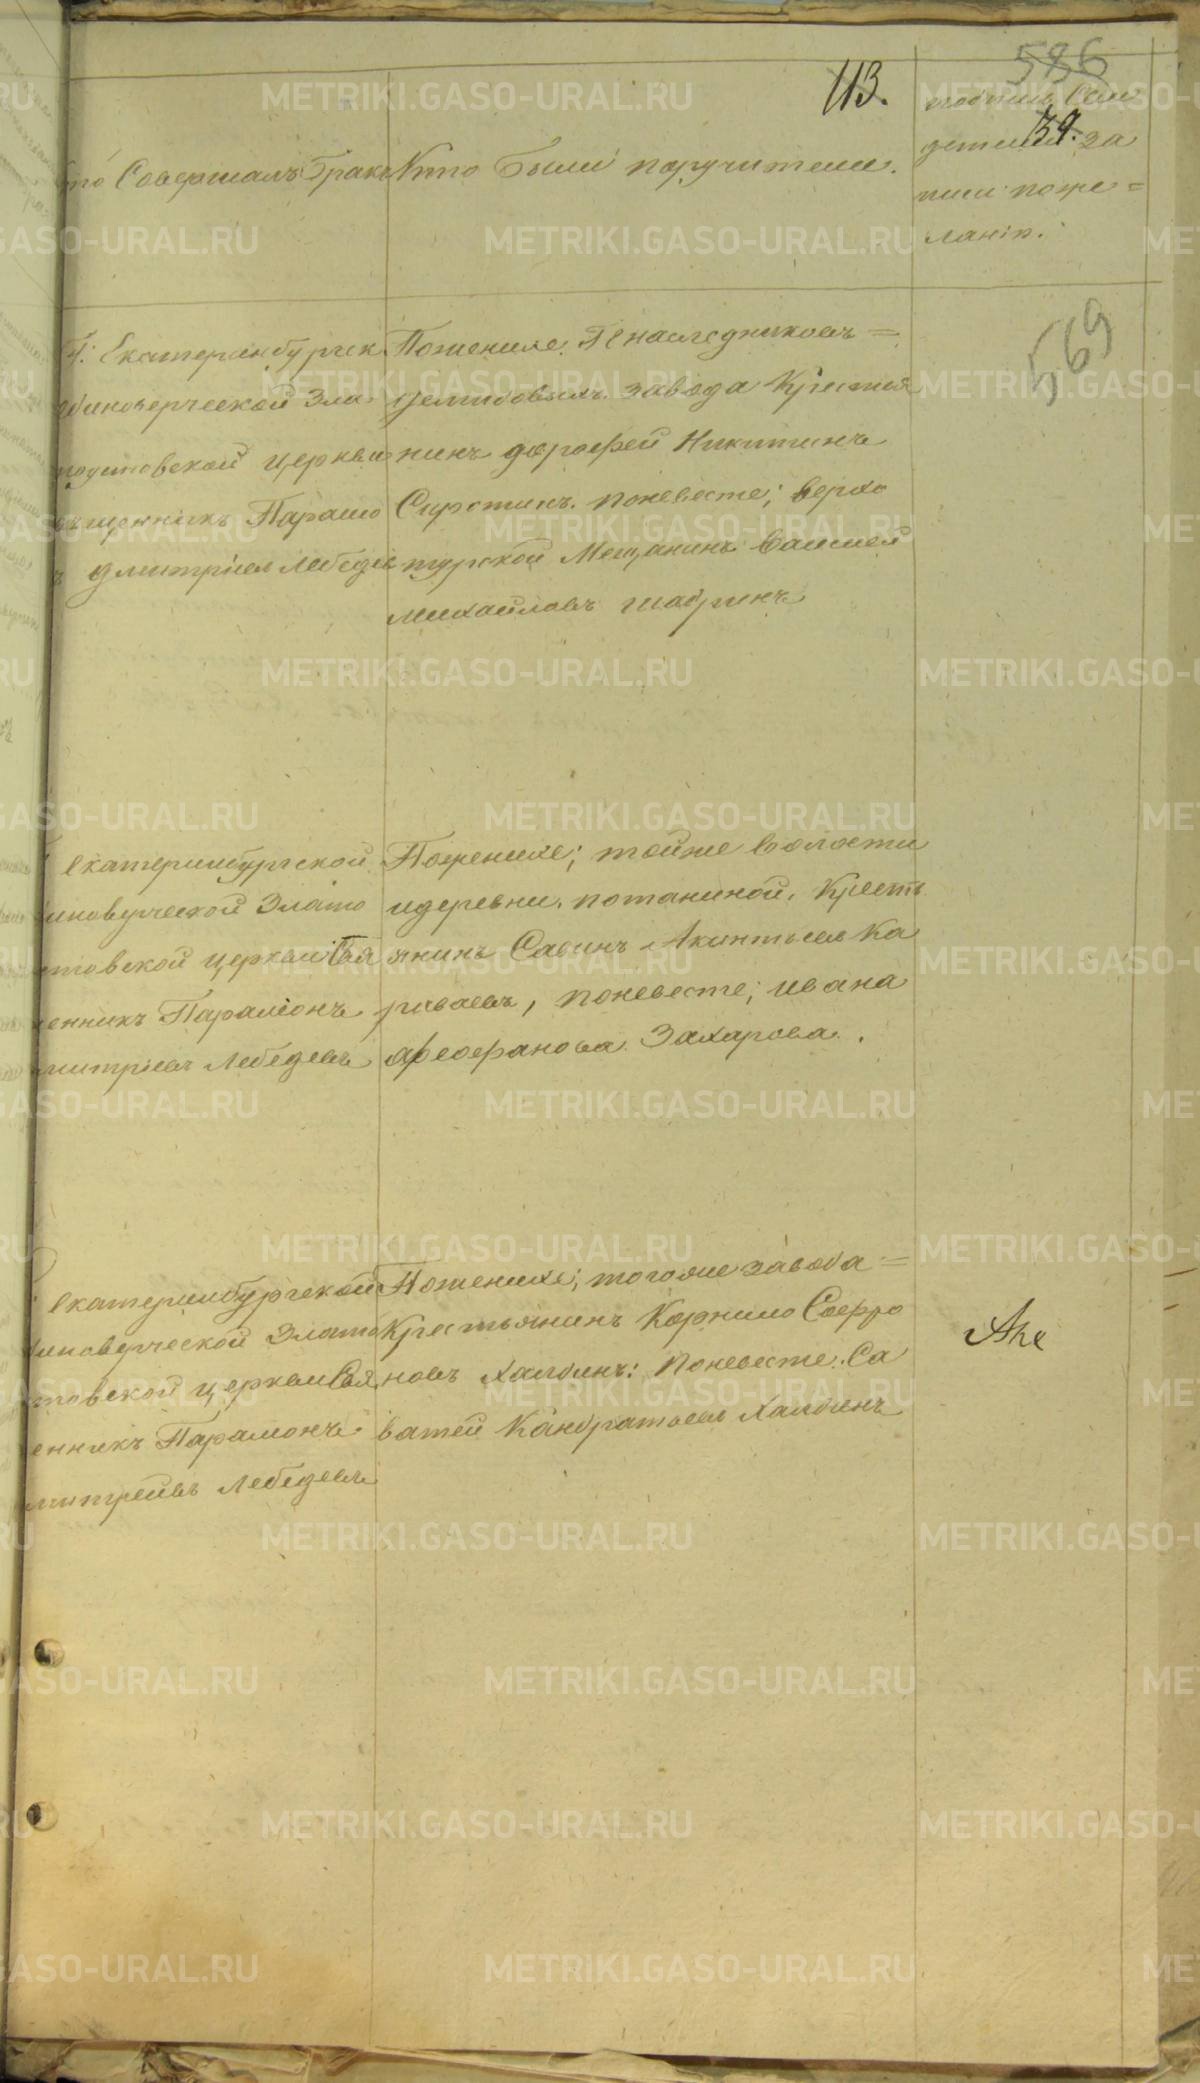 586
113.
39.
Кто Совершалъ Бракъ
Кто были поручители.
за
писи поже=
ланію.
569
Г: Екатеринбургск
Единоверческой Зла
тоустовской церкви
Священникъ Парамо
нъ Дмитріев Лебедев
Поженихе: Гг наследниковъ=
демидовыхъ завода Крестья
нинъ дорофей Никитинъ
Сиротинъ. поневесте; верхо
турской Мещанинъ Василей
Михайловъ шабринъ
екатеринбургской
Единоверческой Злато
устовской церкви Свя
щенникъ Парамонъ
Дмитріевъ Лебедевъ
Поженихе; тойже волости
идеревни. потаниной. Кресть
янинъ Савинъ Акинтьевъ Ка
риваевъ, поневесте; ивана
афеофанова Захарова.
екатеринбургской
Единоверческой Злато
устовской церкви Свя
щенникъ Парамонъ
Дмитрейвъ Лебедевъ
Поженихе; тогоже завода=
Крестьянинъ Корнило Софро
новъ Халдинъ: поневесте. Са
ватей Кандратьевъ Халдинъ
METRIKI.GASO-URAL.RU